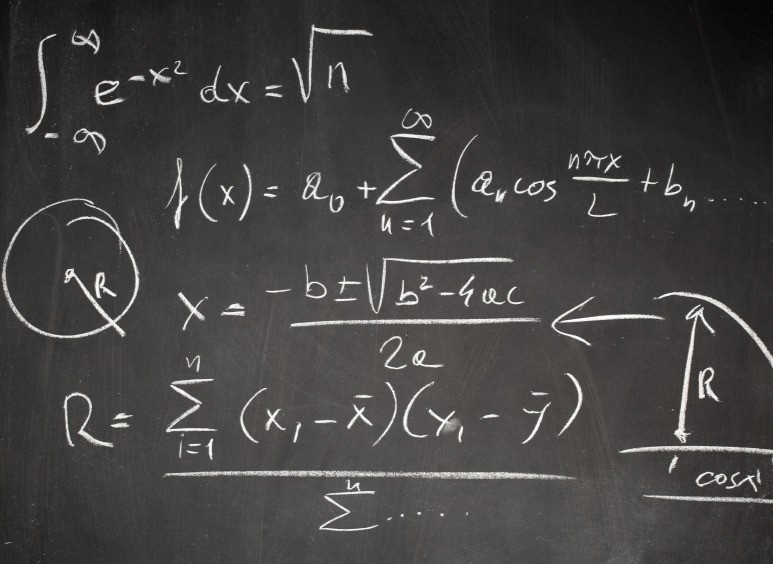 ∫_{-∞}^{∞} e^{-x²} dx = √n
f(x) = a₀ + ∑_{n=1}^{∞} (aₙ cos nπx/L + bₙ ......
R
x = (-b ± √(b² - 4ac)) / 2a
R
R = ∑_{i=1}^{n} (x₁ - x̄)(y₁ - ȳ) / ∑^{n} ......
cosx